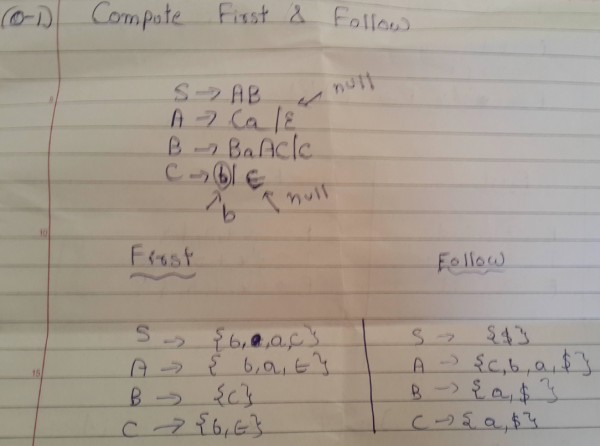 (Q-1) Compute First & Follow
S → AB
null
A → Ca/ε
B → BaAC/c
C → b/ε
null
b
First
Follow
S → {b, a, c}
S → {$}
A → { b, a, ε}
A → {c, b, a, $}
B → {c}
B → {a, $ }
C → {b, ε}
C → {a, $}